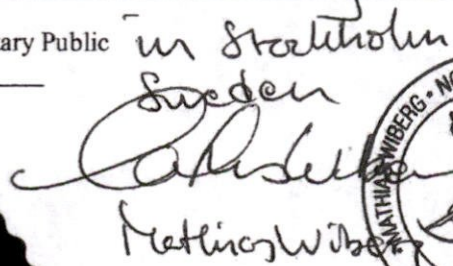 ary Public in Stockholm
Sweden
Mathias Wiberg
MATHIAS WIBERG • NO